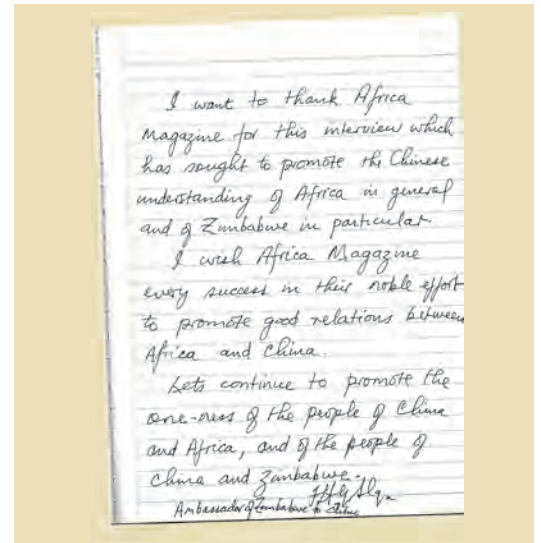 I want to thank Africa
Magazine for this interview which
has sought to promote the Chinese
understanding of Africa in general
and of Zimbabwe in particular.
I wish Africa Magazine
every success in their noble effort
to promote good relations between
Africa and China.
Lets continue to promote the
one-ness of the people of China
and Africa, and of the people of
China and Zimbabwe.
Ambassador of Zimbabwe to China